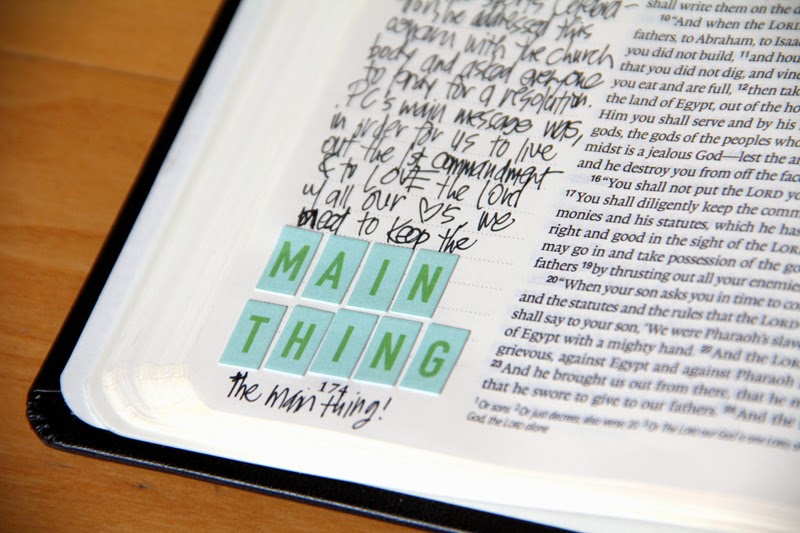 he addressed this
concern with the church
body and asked everyone
to pray for a resolution.
PC's main message was,
in order for us to live
out the 1st commandment
& to LOVE the Lord
w/ all our ♡s we
need to keep the
MAIN
THING
174
the main thing!
shall write them on the d
10 “And when the LORD
fathers, to Abraham, to Isaac
you did not build, 11 and hou
that you did not dig, and vine
you eat and are full, 12 then tak
the land of Egypt, out of the ho
Him you shall serve and by his
gods, the gods of the peoples who
midst is a jealous God—lest the an
and he destroy you from off the face
16 “You shall not put the LORD yo
17 You shall diligently keep the comm
monies and his statutes, which he has
right and good in the sight of the LORD
may go in and take possession of the go
fathers 19 by thrusting out all your enemies
20 “When your son asks you in time to co
and the statutes and the rules that the LORD
shall say to your son, ‘We were Pharaoh's slave
of Egypt with a mighty hand. 22 And the LORD
grievous, against Egypt and against Pharaoh
23 And he brought us out from there, that he m
that he swore to give to our fathers. 24 And the
1 Or sons 2 Or just decrees; also verse 20 3 Or The LORD our God is one LORD;
God, the LORD alone